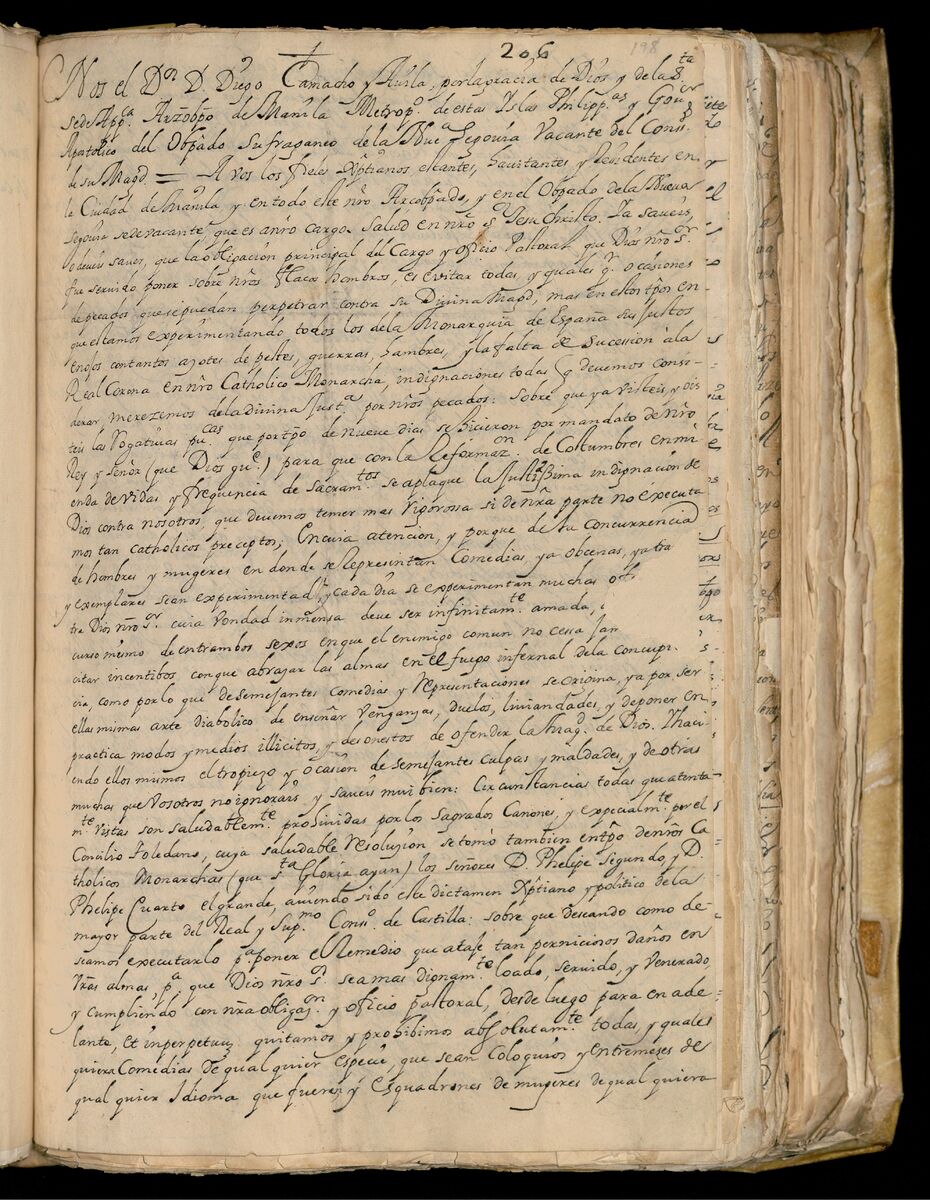 206
198
Nos el Dⁿ D. Diego Camacho y Avila, por la gracia de Dios y de la S.ta
sede App.ca Arzobpo de Manila Metrop.o de estas Islas Philipp.as y Gov.or
Apostolico del Obpado sufraganeo de la Nue.a Segovia Vacante del Cons.o
de su Mag.d = A vos los fieles Xptianos estantes, havitantes y Residentes en
la Ciudad de Manila y en todo este nro Arzobpado, y en el Obpado de la Nueva
Segovia sedevacante que es a nro cargo. Salud en nro S.r Jesu Christo. Ya saveis,
o deveis saver, que la obligacion principal del Cargo y oficio Pastoral que Dios nro S.r
fue servido poner sobre nros flacos hombros es evitar todas y quales q.r ocasiones
de pecados que se puedan perpetrar contra su Divina Mag.d, mas en estos tpos en
que estamos experimentando todos los de la Monarquia de España sus justos
enojos con tantos azotes de pestes, guerras, hambres, y la falta de sucesion à la
Real Corona en nro Catholico Monarcha, indignaciones todas q devemos consi-
derar, merezemos de la divina Just.a por nros pecados: Sobre que ya visteis, y ois
teis las Rogativas pu.cas que por tpo de nueve dias se hicieron por mandato de nro
Rey y señor (que Dios gu.e) para que con la Reformaz.on de Costumbres enmi-
enda de vidas y frequencia de sacram.tos se aplaque la justissima indignacion de
Dios contra nosotros, que devemos temer mas rigorossa si de nra parte no executa
mos tan catholicos preceptos; En cuia atencion, y porque de su Concurrencia
de hombres y mugeres en donde se Representan Comedias, ya obcenas, ya tra
y exemplares sean experimentad y cada dia se experimentan muchas
tra Dios nro S.or cuia vondad inmensa deve ser infinitam.te amada,
curso mismo de entrambos sexos en que el enemigo comun no cessa
citar incentibos con que abrajar las almas en el fuego infernal de la Concupi
cia, como por lo que de semejantes Comedias y Representaciones se origina, ya por ser
ellas mismas arte diabolico de enseñar venganzas, duelos, liviandades, y de poner en
practica modos y medios illicitos, y desonestos de ofender la Mag.d de Dios. Y haci
endo ellos mismos el tropiezo y ocasion de semejantes culpas y maldades, y de otras
muchas que Vosotros no ignorais y saveis mui bien: Circunstancias todas que atenta-
m.te vistas son saludablem.te prohividas por los Sagrados Canones, y especialm.te por el
Concilio Toledano, cuya saludable Resoluzion se tomó tambien en tpo de nros Ca
tholicos Monarchas (que s.ta Gloria ayan) los señores D. Phelipe Segundo y D.
Phelipe Cuarto el grande, aviendo sido este dictamen Xptiano y politico de la
mayor parte del Real y Sup.mo Cons.o de Castilla: sobre que deseando como de-
seamos executarlo p.a poner el Remedio que ataje tan perniciosos daños en
vras almas p.a que Dios nro S.or sea mas dignam.te loado, servido, y venerado,
y cumpliendo con nra obligaz.on y oficio pastoral, desde luego para en ade-
lante, et inperpetuum quitamos y prohibimos absolutam.te todas, y quales
quiera Comedias de qual quier especie, que sean Coloquios y entremeses de
qual quier Idioma que fueren y Esquadrones de mugeres de qual quiera